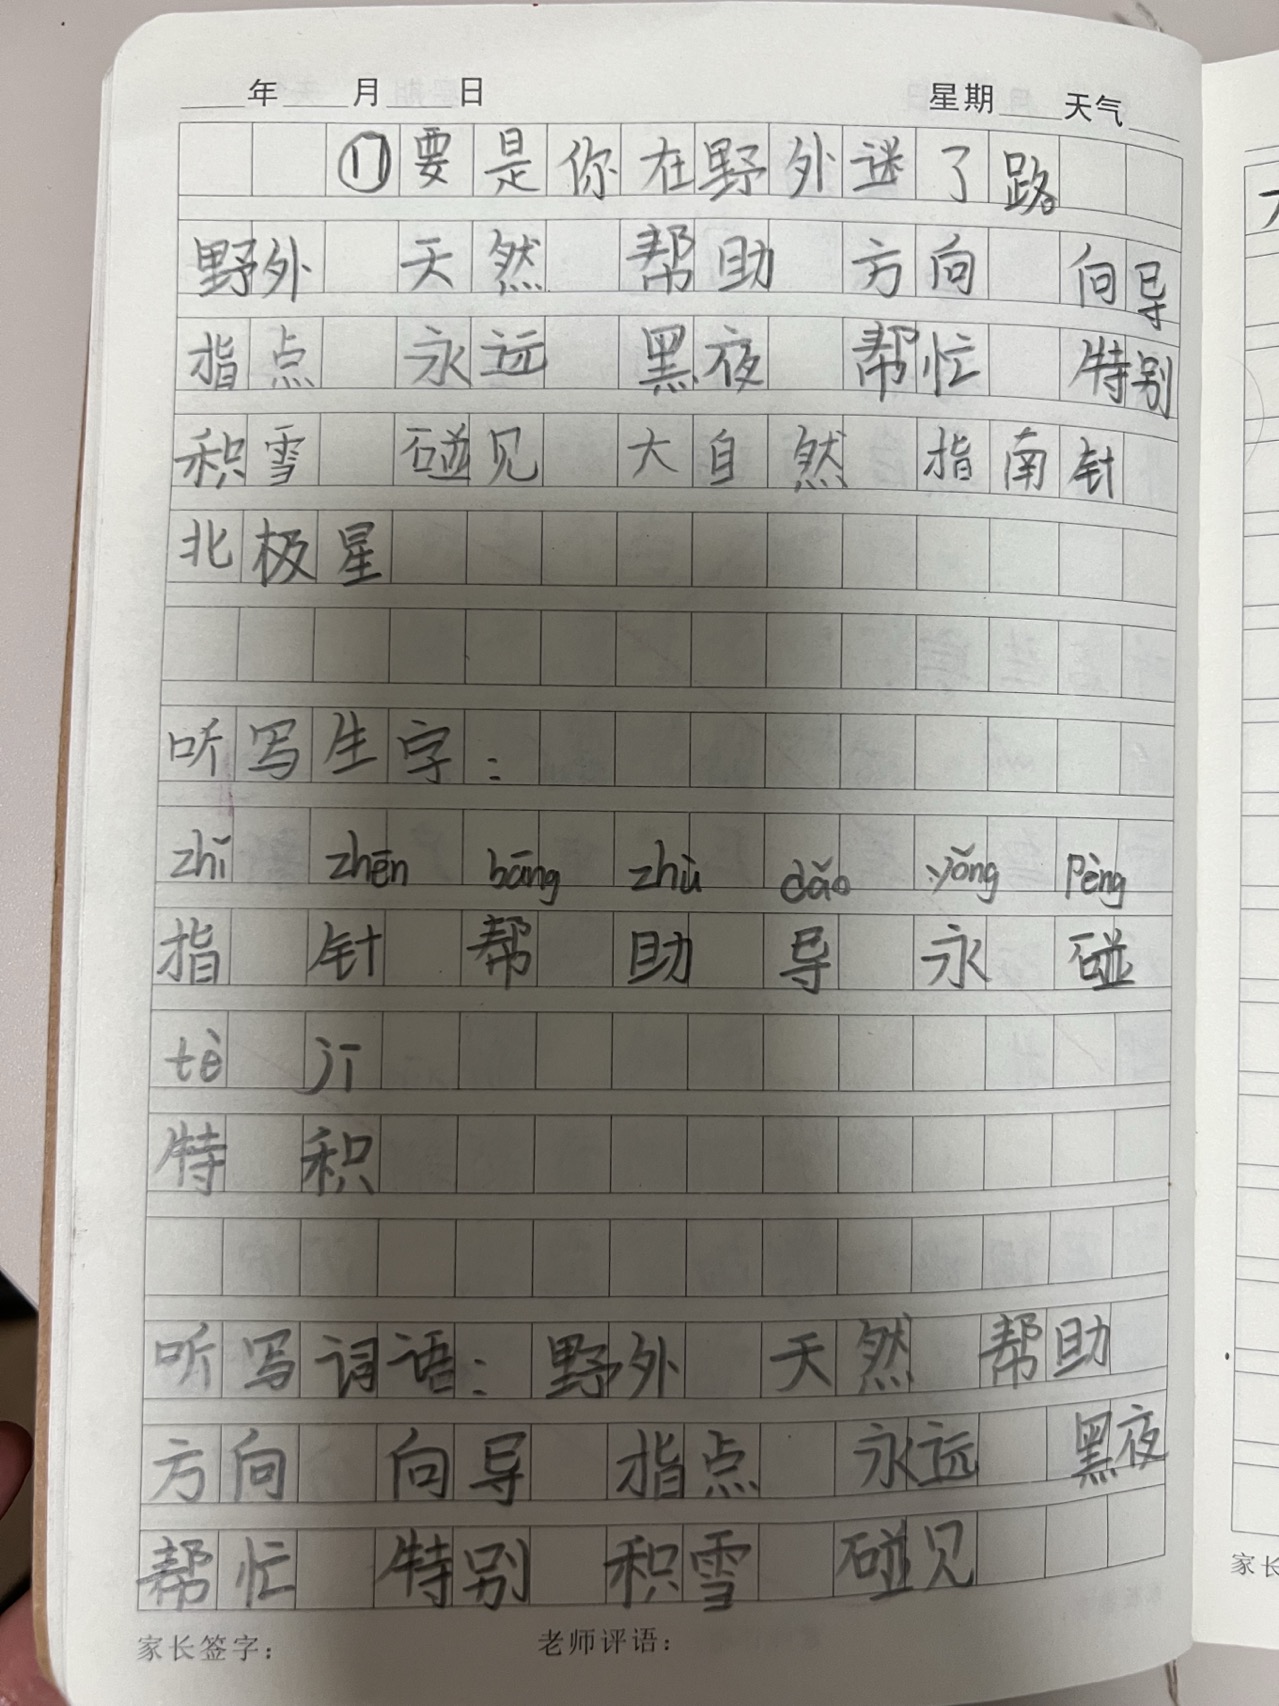 ____年____月____日 星期____天气____
⑰要是你在野外谜了路。
野外 天然 帮助 方向 向导
指点 永远 黑夜 帮忙 特别
积雪 碰见 大自然 指南针
北极星
听写生字：
zhǐ zhēn bāng zhù dǎo yǒng pèng
指 针 帮 助 导 永 碰
tè jī
特 积
听写词语：野外 天然 帮助
方向 向导 指点 永远 黑夜
帮忙 特别 积雪 碰见
家长签字： 老师评语：
家长